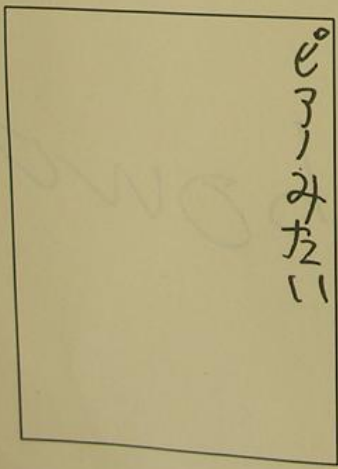 ピアノみたい